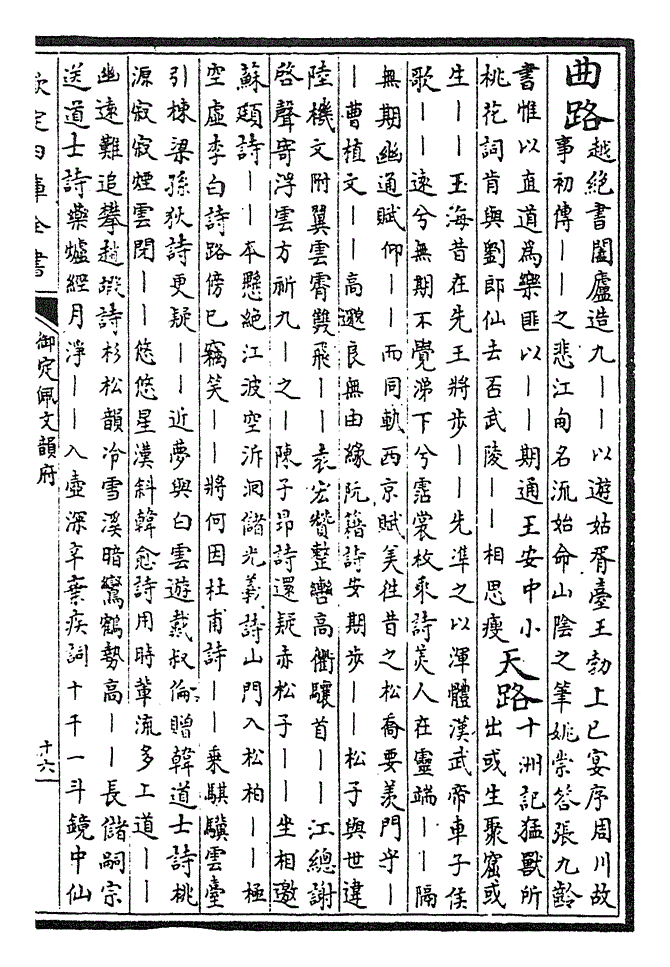 曲路
越絶書闔廬造九｜｜以遊姑胥臺王勃上巳宴序周川故
事初傳｜｜之悲江甸名流始命山陰之筆姚崇答張九齡
書惟以直道為樂匪以｜｜期通王安中小
桃花詞肯與劉郎仙去否武陵｜｜相思瘦
天路
十洲記猛獸所
出或生聚窟或
生｜｜玉海昔在先王將步｜｜先準之以渾體漢武帝車子侯
歌｜｜遠兮無期不覺涕下兮霑裳枚乘詩美人在靈端｜｜隔
無期幽通賦仰｜｜而同軌西京賦美往昔之松喬要羨門乎｜
｜曹植文｜｜高邈良無由緣阮籍詩安期步｜｜松子與世違
陸機文附翼雲霄雙飛｜｜袁宏贊整轡高衢驤首｜｜江總謝
啓聲寄浮雲方祈九｜之｜陳子昂詩還疑赤松子｜｜坐相邀
蘇頲詩｜｜本懸絶江波空泝洄儲光羲詩山門入松柏｜｜極
空虛李白詩路傍已竊笑｜｜將何因杜甫詩｜｜乘騏驥雲臺
引棟梁孫狄詩更疑｜｜近夢與白雲遊戴叔倫贈韓道士詩桃
源寂寂煙雲閉｜｜悠悠星漢斜韓愈詩用時輩流多工道｜｜
幽遠難追攀趙嘏詩杉松韻冷雪溪暗鸞鶴勢高｜｜長儲嗣宗
送道士詩藥爐經月淨｜｜入壺深辛棄疾詞十千一斗鏡中仙
欽定四庫全書
御定佩文韻府
十六